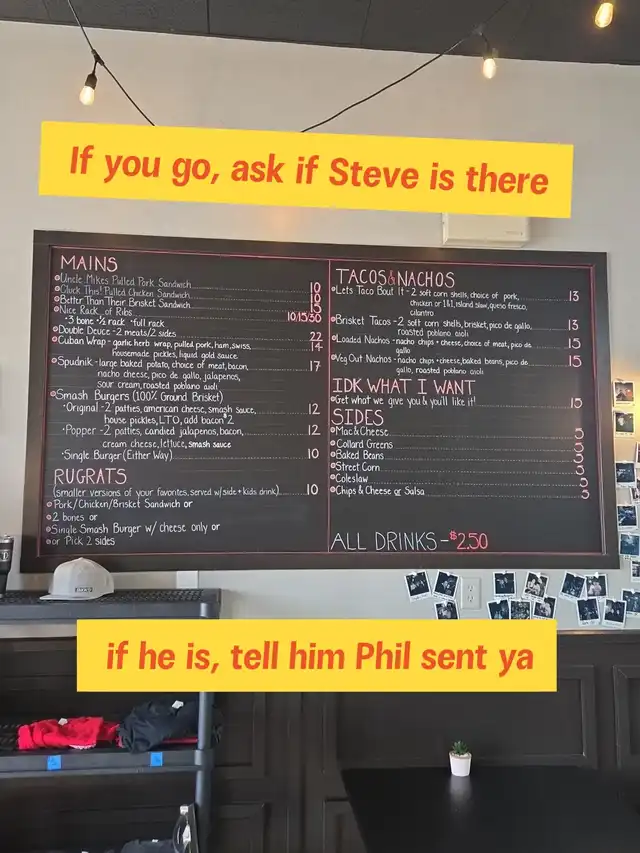 If you go, ask if Steve is there
MAINS
Uncle Mikes Pulled Pork Sandwich 10
Cluck This! Pulled Chicken Sandwich 10
Better Than Their Brisket Sandwich
Nice Rack of Ribs 10/15/30
•3 bone •½ rack •full rack
Double Deuce - 2 meats/2 sides 22
Cuban Wrap - garlic herb wrap, pulled pork, ham, swiss, 14
housemade pickles, liquid gold sauce
Spudnik - large baked potato, choice of meat, bacon, 17
nacho cheese, pico de gallo, jalapenos,
sour cream, roasted poblano aioli
Smash Burgers (100% Ground Brisket)
•Original - 2 patties, american cheese, smash sauce, 12
house pickles, L.T.O, add bacon $2
•Popper - 2 patties, candied jalapenos, bacon, 12
cream cheese, lettuce, smash sauce
•Single Burger (Either Way) 10
RUGRATS
(smaller versions of your favorites, served w/side + kids drink) 10
Pork/Chicken/Brisket Sandwich or
2 bones or
Single Smash Burger w/ cheese only or
or Pick 2 sides
TACOS & NACHOS
Lets Taco Bout It - 2 soft corn shells, choice of pork, 13
chicken or 1&1, island slaw, queso fresco,
cilantro
Brisket Tacos - 2 soft corn shells, brisket, pico de gallo, 13
roasted poblano aioli
Loaded Nachos - nacho chips + cheese, choice of meat, pico de 15
gallo
Veg Out Nachos - nacho chips + cheese, baked beans, pico de 15
gallo, roasted poblano aioli
IDK WHAT I WANT
Get what we give you & you'll like it! 15
SIDES
Mac & Cheese
Collard Greens
Baked Beans
Street Corn
Coleslaw
Chips & Cheese or Salsa
ALL DRINKS - $2.50
if he is, tell him Phil sent ya